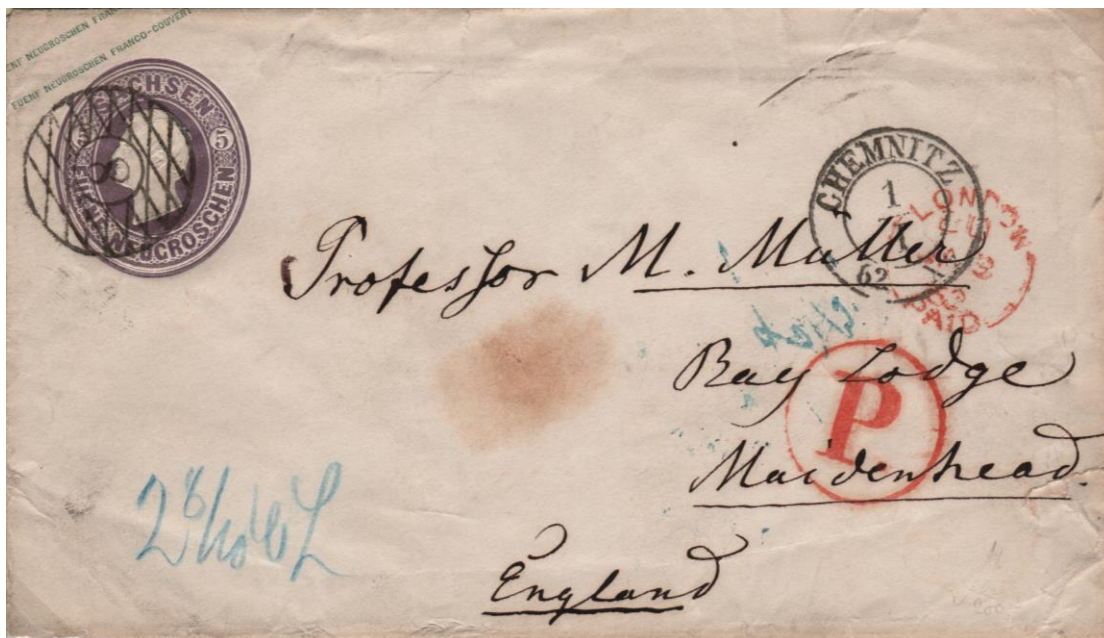 ENF NEUGROSCHEN FRAN
FUENF NEUGROSCHEN FRANCO-COUVERT
SACHSEN
5
FUENF NEUGROSCHEN
8
CHEMNITZ
1
62
LONDON
PAID
Professor M. Muller
Ray Lodge
P
Maidenhead.
England